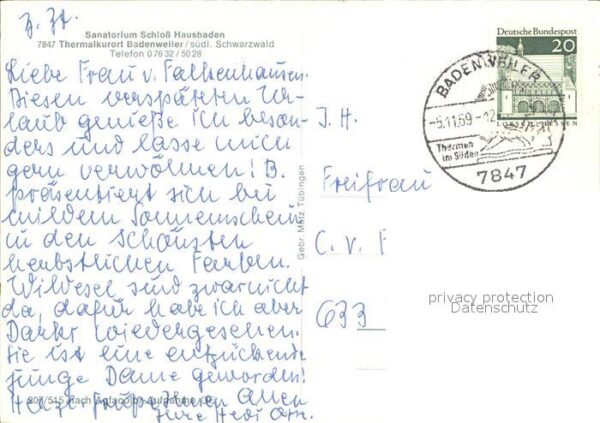 z. Zt.
Sanatorium Schloß Hausbaden
7847 Thermalkurort Badenweiler / südl. Schwarzwald
Telefon 07632/5028
Liebe Frau v. Falkenhausen.
Diesen verspäteten Ur-
laub genieße ich beson-
ders und lasse mich
gern verwöhnen! B.
präsentiert sich bei
mildem Sonnenschein
in den schönsten
herbstlichen Farben.
sind zwar nicht
da, dafür habe ich aber
wiedergesehen.
Sie ist eine entzückende
junge Dame geworden!
Allen
Ihre
307/515 Nach Agfacolor-Aufnahme
Gebr. Metz Tübingen
Deutsche Bundespost
20
BADENWEILER
-5.11.69-12
Thermen
im Süden
7847
I. H.
Freifrau
C. v. F
633
privacy protection
Datenschutz